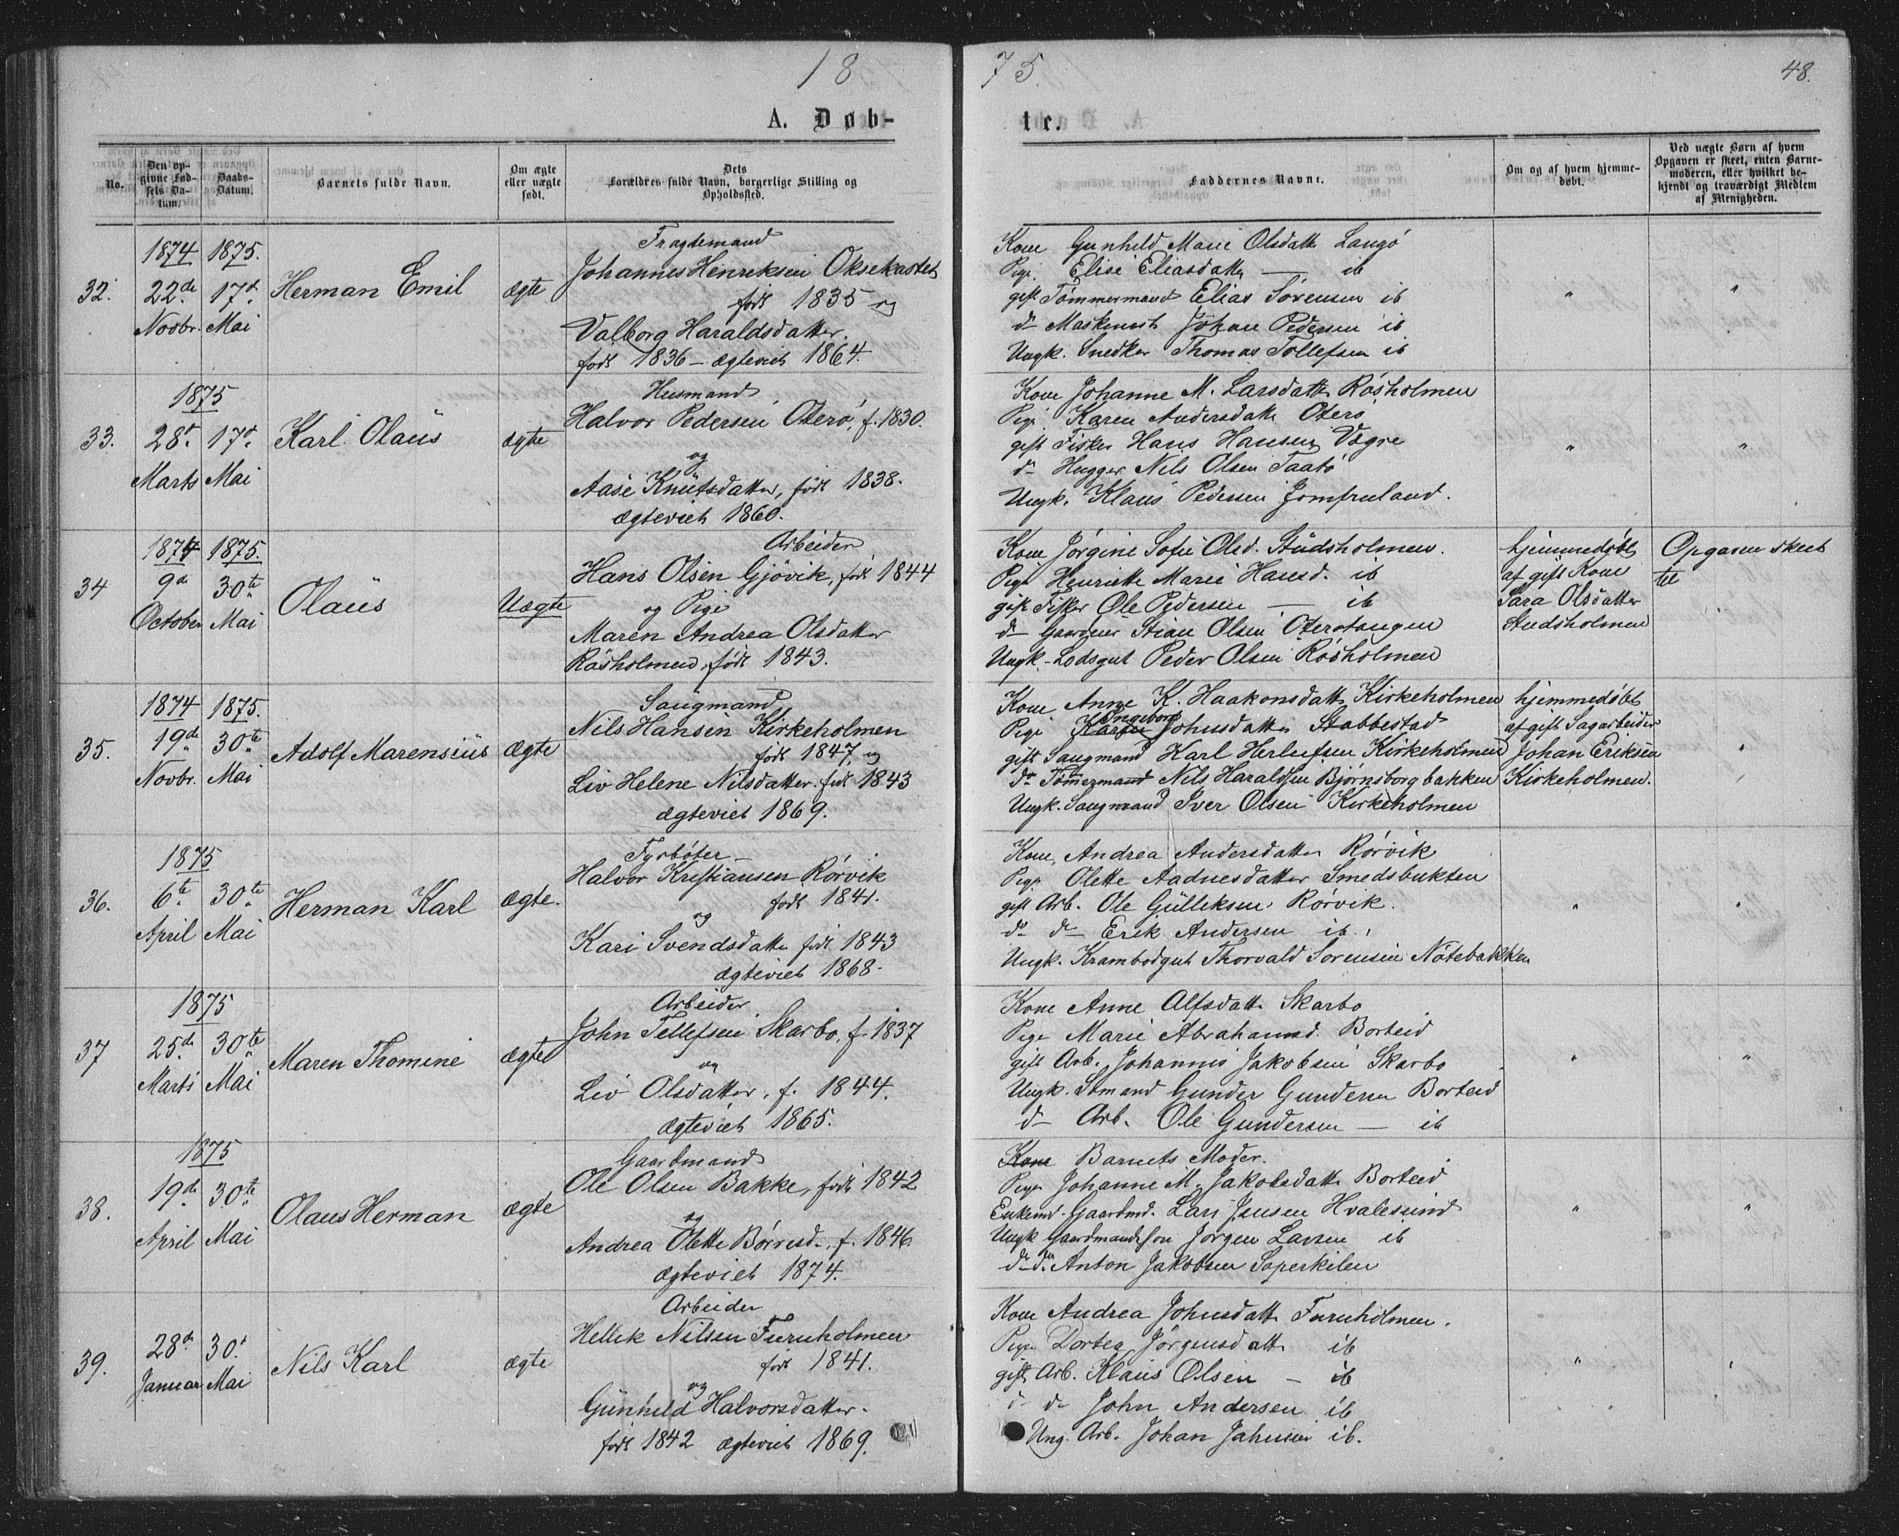 18 75. 48.
A. Døb- te.
No.
Den op-
givne Fød-
sels Da-
tum.
Daabs-
Datum.
Barnets fulde Navn.
Om ægte
eller uægte
født.
Dets
Forældres fulde Navn, borgerlige Stilling og
Opholdssted.
Faddernes Navne.
Om og af hvem hjemme-
døbt.
Ved uægte Børn af hvem
Opgaven er skeet, enten Barne-
moderen, eller hvilket be-
kjendt og troværdigt Medlem
af Menigheden.
32.
1874
22de
Novbr.
1875.
17d
Mai
Herman Emil
ægte
Fragtemand
Johannes Henriksen Oksekastet
født 1835 og
Valborg Haraldsdatter
født 1836 – ægteviet 1864.
Kone Gunhild Marie Olsdatt Langö
Pige. Elise Eliasdatter — ib
gift Tömmermand Elias Sörensen ib
do Maskinist Johan Pedersen ib
Ungk. Snedker Thomas Tollefsen ib
"
"
33.
1875
28d
Marts
17d
Mai
Karl Olaüs
ægte
Husmand
Halvor Pedersen Oterö, f. 1830.
og
Aase Knütsdatter, født 1838.
ægteviet 1860.
Kone Johanne M. Larsdatt Råsholmen
Pige. Karen Andersdatt Oterö
gift Fisker Hans Hansen Vægre
do Hugger Nils Olsen Taatö
Ungk. Klaus Pedersen Jomfruland.
"
"
34
1874
9d
October
1875.
30te
Mai
Olaüs
Uægte
Arbeider
Hans Olsen Gjövik, født 1844
og Pige
Maren Andrea Olsdatter
Råsholmen, født 1843.
Kone Jörgine Sofie Olsd. Stüdsholmen.
Pige Henriette Marie Hansd. ib
gift Fisker Ole Pedersen — ib
do Gaardeier Stian Olsen Oterötangen
Ungk. Lodsgut Peder Olsen Råsholmen
hjemmedöbt
af gift Kone
Sara Olsdatter
Studsholmen
Opgaven skeet
til
35.
1874
19d
Novbr.
1875.
30te
Mai
Adolf Marensiüs
Ægte
Saugmand
Nils Hansen Kirkeholmen
født 1847, og
Liv Helene Nilsdatter født 1843
ægteviet 1869.
Kone Anne K. Haakonsdatt Kirkeholmen
Pige Karen Ingeborg Johnsdatter Stabbestad
gift Saugmand Karl Herlefsen Kirkeholmen
do Tömmermand Nils Haraldsen Bjørnsborgbakken
Ungk. Saugmand Iver Olsen Kirkeholmen
hjemmedöbt
af gift Sagarbeider
Johan Eriksen
Kirkeholmen.
"
36.
1875
6te
April
30te
Mai
Herman Karl
ægte.
Fyrböter
Halvor Kristiansen Rörvik
født 1841.
og
Kari Svendsdatter født 1843
ægteviet 1868.
Kone, Andrea Andersdatter Rörvik
Pige Olette Aadnesdatter Smedsbukten
gift Arb. Ole Gülleksen Rörvik.
do do Erik Andersen ib.
Ungk. Krambodgut Thorvald Sorensen Nötebakken
"
"
37
1875
25de
Marts
30te
Mai
Maren Thomine
ægte
Arbeider
John Tellefsen Skarbo, f. 1837
og
Liv Olsdatter, f. 1844.
ægteviet 1865.
Kone Anne Alfsdatt Skarbo
Pige Marie Abrahamsd. Borteid
gift Arb. Johannis Jakobsen Skarbo
Ungk. Sömand Gunder Gundersen Borteid
do Arb. Ole Gundersen — ib
"
"
38.
1875
19de
April
30te
Mai
Olaus Herman
ægte
Gaardmand
Ole Olsen Bakke, født 1842
og
Andrea Olette Börresd., f. 1846.
ægteviet 1874.
Kone Barnets Moder.
Pige Johanne M. Jakobsdatt Borteid
Enkemd. Gaardmd. Lars Jensen Hvalesund
Ungk Gaardmandssön Jörgen Larsen ib
do do Anton Jakobsen Saperkilen
"
"
39.
28d
Januar
30.t
Mai
Nils Karl
ægte
Arbeider
Hellek Nilsen Furuholmen
født 1841.
og
Günhild Halvorsdatter
født 1842 ægteviet 1869.
Kone Andrea Johnsdatt Furuholmen.
Pige Dortea Jörgensdatt ib
gift Arb. Klaus Olsen — ib
do do John Andersen ib
Ung. Arb. Johan Jahnsen ib.
"
"